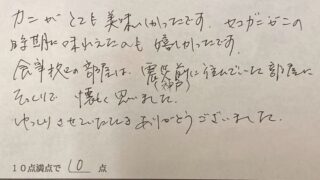 カニがとても美味しかったです。セコガニがこの
時期に味わえたのも嬉しかったです。
食事処の部屋は、震災前に住んでいた部屋に
(神戸)
そっくりで 懐しく思いました。
ゆっくりさせていただき ありがとうございました。
10点満点で 10 点